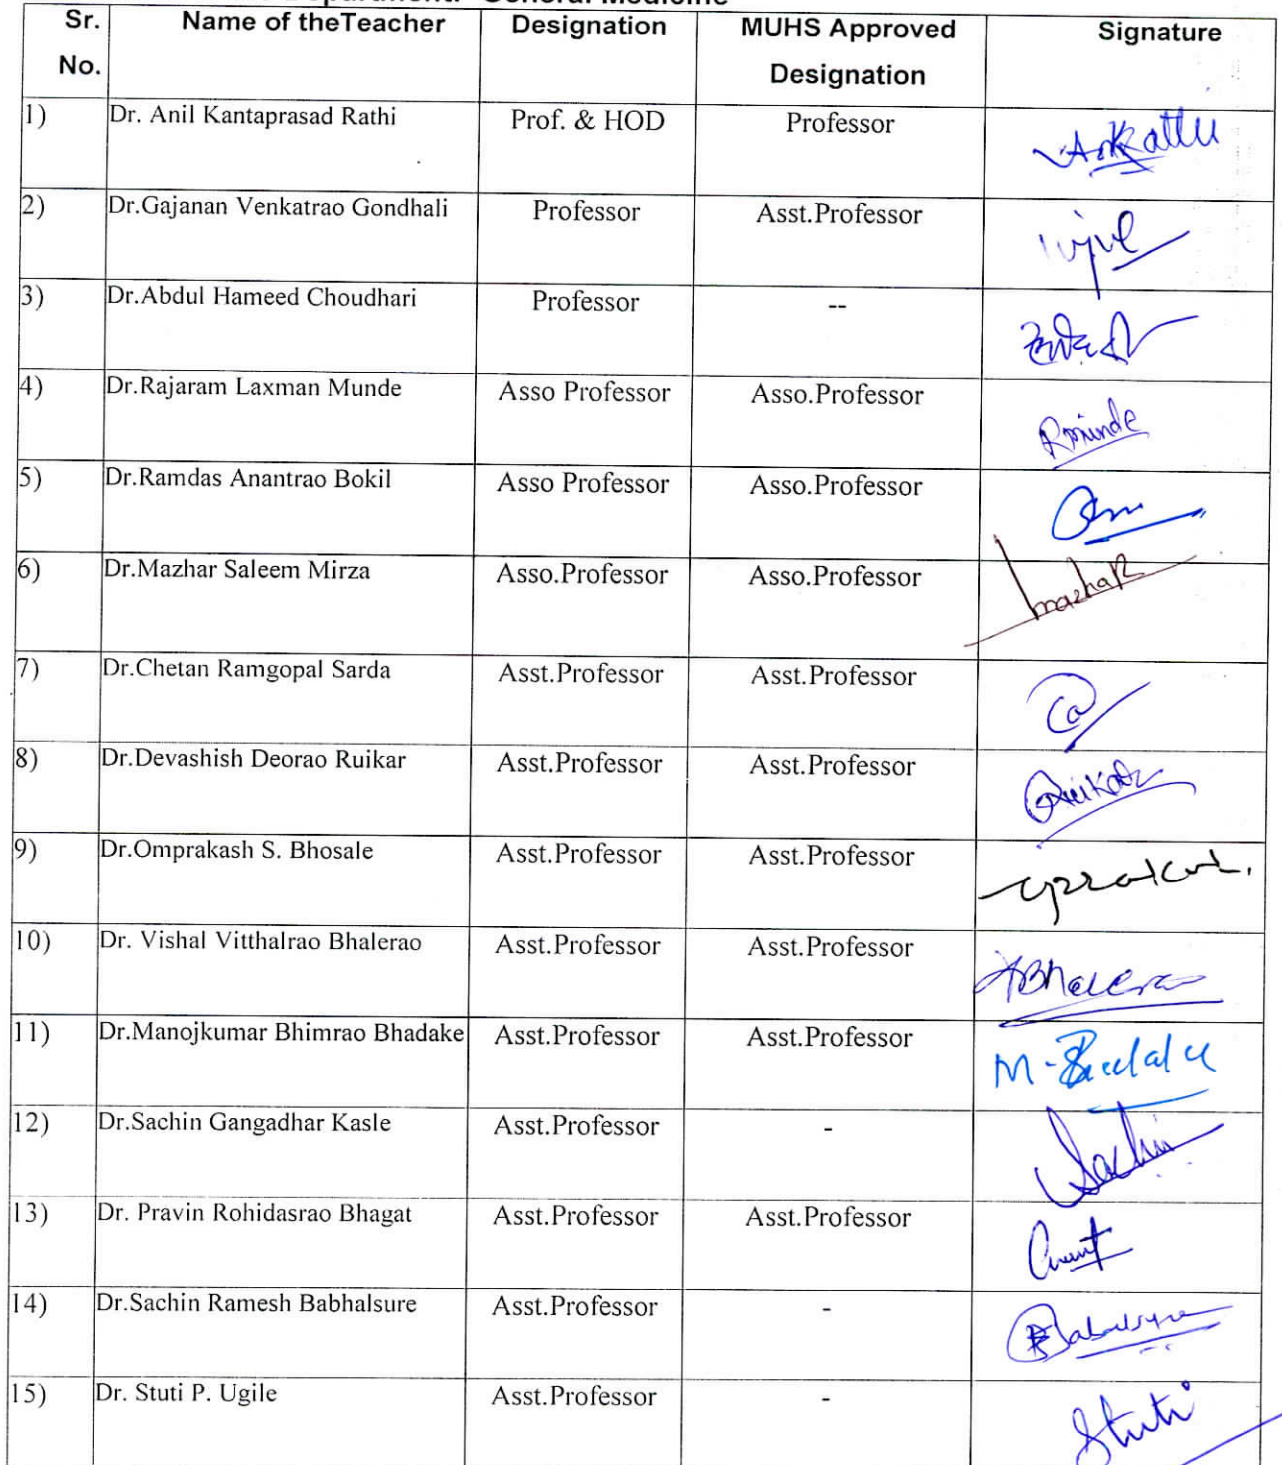 General Medicine
Sr. No. Name of theTeacher Designation MUHS Approved Designation Signature
1) Dr. Anil Kantaprasad Rathi Prof. & HOD Professor
2) Dr.Gajanan Venkatrao Gondhali Professor Asst.Professor
3) Dr.Abdul Hameed Choudhari Professor --
4) Dr.Rajaram Laxman Munde Asso Professor Asso.Professor Rmunde
5) Dr.Ramdas Anantrao Bokil Asso Professor Asso.Professor
6) Dr.Mazhar Saleem Mirza Asso.Professor Asso.Professor
7) Dr.Chetan Ramgopal Sarda Asst.Professor Asst.Professor
8) Dr.Devashish Deorao Ruikar Asst.Professor Asst.Professor
9) Dr.Omprakash S. Bhosale Asst.Professor Asst.Professor
10) Dr. Vishal Vitthalrao Bhalerao Asst.Professor Asst.Professor
11) Dr.Manojkumar Bhimrao Bhadake Asst.Professor Asst.Professor
12) Dr.Sachin Gangadhar Kasle Asst.Professor - Sachin
13) Dr. Pravin Rohidasrao Bhagat Asst.Professor Asst.Professor
14) Dr.Sachin Ramesh Babhalsure Asst.Professor -
15) Dr. Stuti P. Ugile Asst.Professor - Stuti